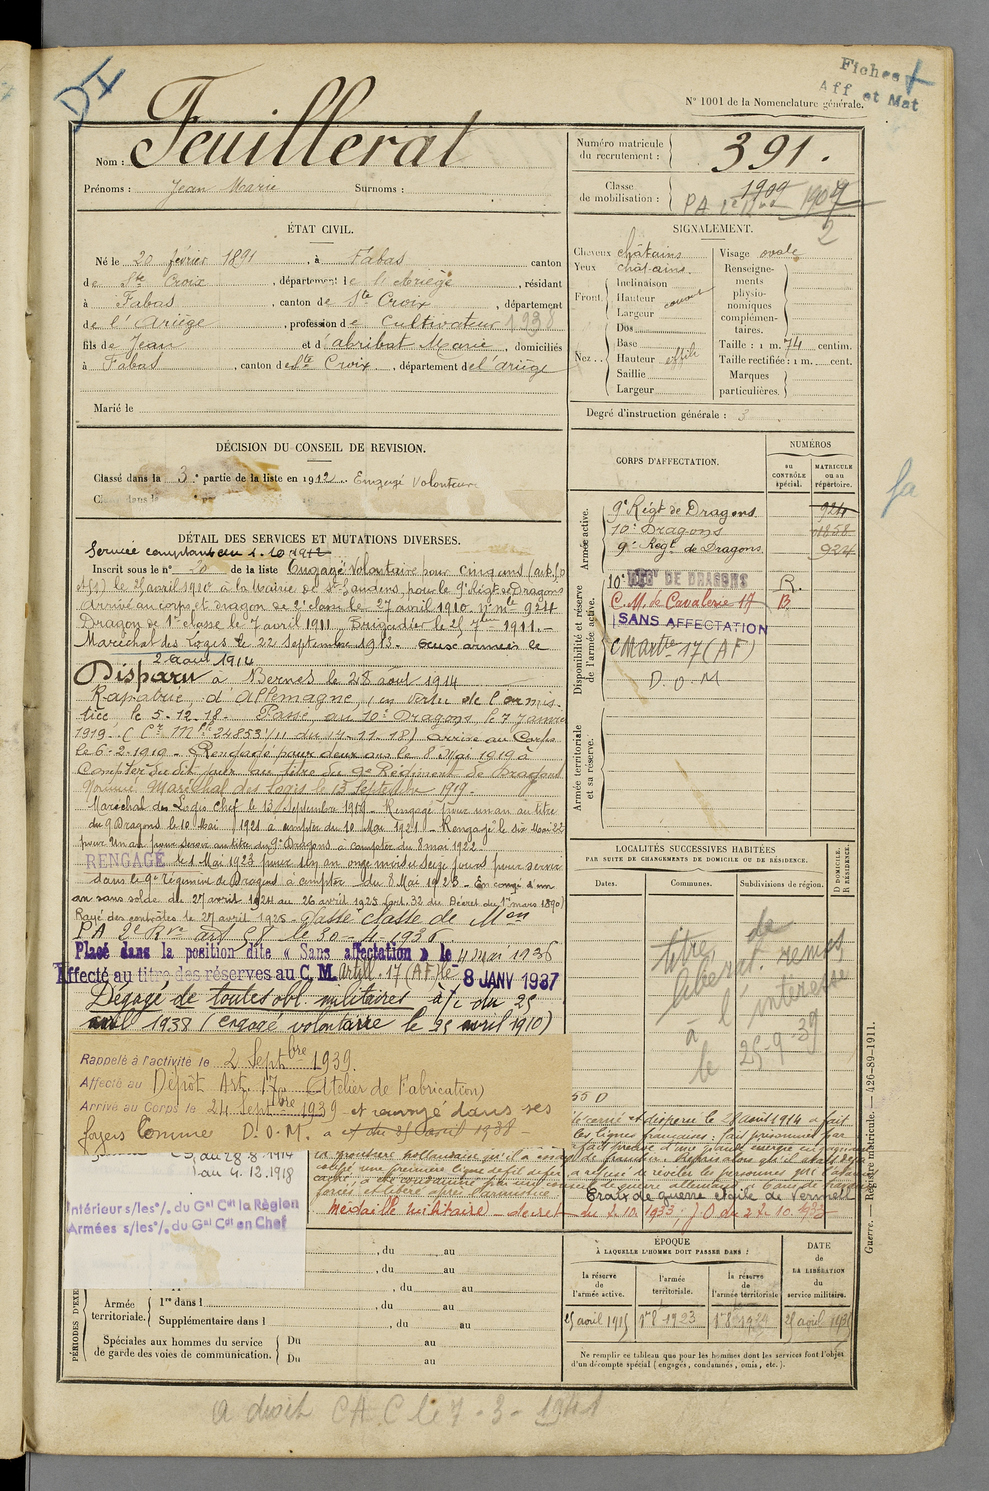 DI
Fiches
Aff et Mat
N° 1001 de la Nomenclature générale.
Nom : Feuillerat
Prénoms : Jean Marie Surnoms :
Numéro matricule du recrutement : 391.
Classe de mobilisation : 1909 1907
PA
2
ÉTAT CIVIL.
Né le 20 février 1891, à Fabas canton
de Ste Croix, département de l'Ariège, résidant
à Fabas, canton de Ste Croix, département
de l'Ariège, profession de Cultivateur 1938
fils de Jean et d'Abribat Marie, domiciliés
à Fabas, canton de Ste Croix, département de l'Ariège
Marié le
SIGNALEMENT.
Cheveux châtains
Yeux châtains.
Front.
Inclinaison
Hauteur
Largeur
Dos
Nez...
Base
Hauteur effilé
Saillie
Largeur
Visage ovale
Renseignements physionomiques complémentaires.
Taille : 1 m. 74 centim.
Taille rectifiée : 1 m. cent.
Marques particulières.
Degré d'instruction générale : 3
DÉCISION DU CONSEIL DE REVISION.
Classé dans la 3e partie de la liste en 1912. Engagé Volontaire
DÉTAIL DES SERVICES ET MUTATIONS DIVERSES.
Inscrit sous le n° 20 de la liste Engagé Volontaire pour cinq ans
le 25 avril 1910 à la Mairie de St Gaudens, pour le 9e Régt de Dragons
Arrivé au corps et dragon de 2e classe le 27 avril 1910 n° mle 924
Dragon de 1re classe le 7 avril 1911. Brigadier le 25 7bre 1911.-
Maréchal des Logis le 22 Septembre 1913. aux armées le
2 août 1914
Disparu à Bernes le 28 août 1914
Rapatrié d'Allemagne, en vertu de l'armis-
tice, le 5-12-18. Passé au 10e Dragons le 7 janvier
1919. (Cre Mlle 24853 1/11 du 14-11-18) Arrivé au Corps
le 6-2-1919 - Rengagé pour deux ans le 8 Mai 1919 à
compter dudit jour au titre du 9e Régiment de Dragons
Nommé Maréchal des Logis le 13 Septembre 1919.
Maréchal des Logis Chef le 13 Septembre 1919 - Rengagé pour un an au titre
du 9 Dragons le 10 Mai 1921 à compter du 10 Mai 1921 - Rengagé le six Mai 22
pour un an pour servir au titre du 9e Dragons à compter du 8 mai 1922.
RENGAGÉ le 1 Mai 1923 pour un an onze mois et seize jours pour servir
dans le 9e Régiment de Dragons à compter du 8 Mai 1923 - En congé d'un
an sans solde du 27 avril 1924 au 26 avril 1925 (art. 32 du Décret du 1er mars 1890)
Rayé des contrôles le 27 avril 1925 - Passé classe de Mon
PA 2e Rve art 58 le 30-4-1936
Placé dans la position dite « Sans affectation » le 4 mai 1936
Affecté au titre des réserves au C. M. Artill. 17 (AF) le 8 JANV 1937
Dégagé de toutes obl. militaires à/c du 25
avril 1938 (engagé volontaire le 25 avril 1910)
Rappelé à l'activité le 2 Septbre 1939.
Affecté au Dépôt Art. 17 (Atelier de Fabrication)
Arrivé au Corps le 24 Septbre 1939 et renvoyé dans ses
foyers comme D.O.M. à c/ du 25 avril 1938 -
au 28 8-1914
au 4.12.1918
Intérieur s/les°/. du Gal Ct la Région
Armées s/les°/. du Gal Ct en Chef
CORPS D'AFFECTATION.
NUMÉROS
au CONTRÔLE spécial.
MATRICULE ou au répertoire.
Armée active.
9e Régt de Dragons 924
10e Dragons 01858
9e Regt de Dragons 924
Disponibilité et réserve de l'armée active.
10e RÉGt DE DRAGONS R.
C. M. de Cavalerie 17 B.
SANS AFFECTATION
C M Artie 17 (AF)
D.O.M
Armée territoriale et sa réserve.
fa
LOCALITÉS SUCCESSIVES HABITÉES
PAR SUITE DE CHANGEMENTS DE DOMICILE OU DE RÉSIDENCE.
Dates. Communes. Subdivisions de région.
D DOMICILE. R RÉSIDENCE.
titre de
remis
à l'intéressé
le 25-9-39
disparu le 28 août 1914 a fait
les lignes françaises : fait prisonnier par
la frontière hollandaise
a refusé de révéler les personnes qui l'avaient
forcés et libéré après l'armistice. Croix de guerre étoile de Vermeil
Médaille militaire - décret du 2.10.1933. J.O du 22.10.1933
, du au
, du au
, du au
PÉRIODES D'EXE
Armée territoriale.
1re dans l , du au
Supplémentaire dans l , du au
Spéciales aux hommes du service de garde des voies de communication.
Du au
Du au
ÉPOQUE
À LAQUELLE L'HOMME DOIT PASSER DANS :
la réserve de l'armée active.
l'armée territoriale.
la réserve de l'armée territoriale
DATE de LA LIBÉRATION du service militaire.
25 avril 1915
1r 8 1923
25 avril 1935
Ne remplir ce tableau que pour les hommes dont les services font l'objet
d'un décompte spécial (engagés, condamnés, omis, etc.).
Guerre. — Registre matricule. — 426-89-1911.
a droit CAC le 7-3-1941